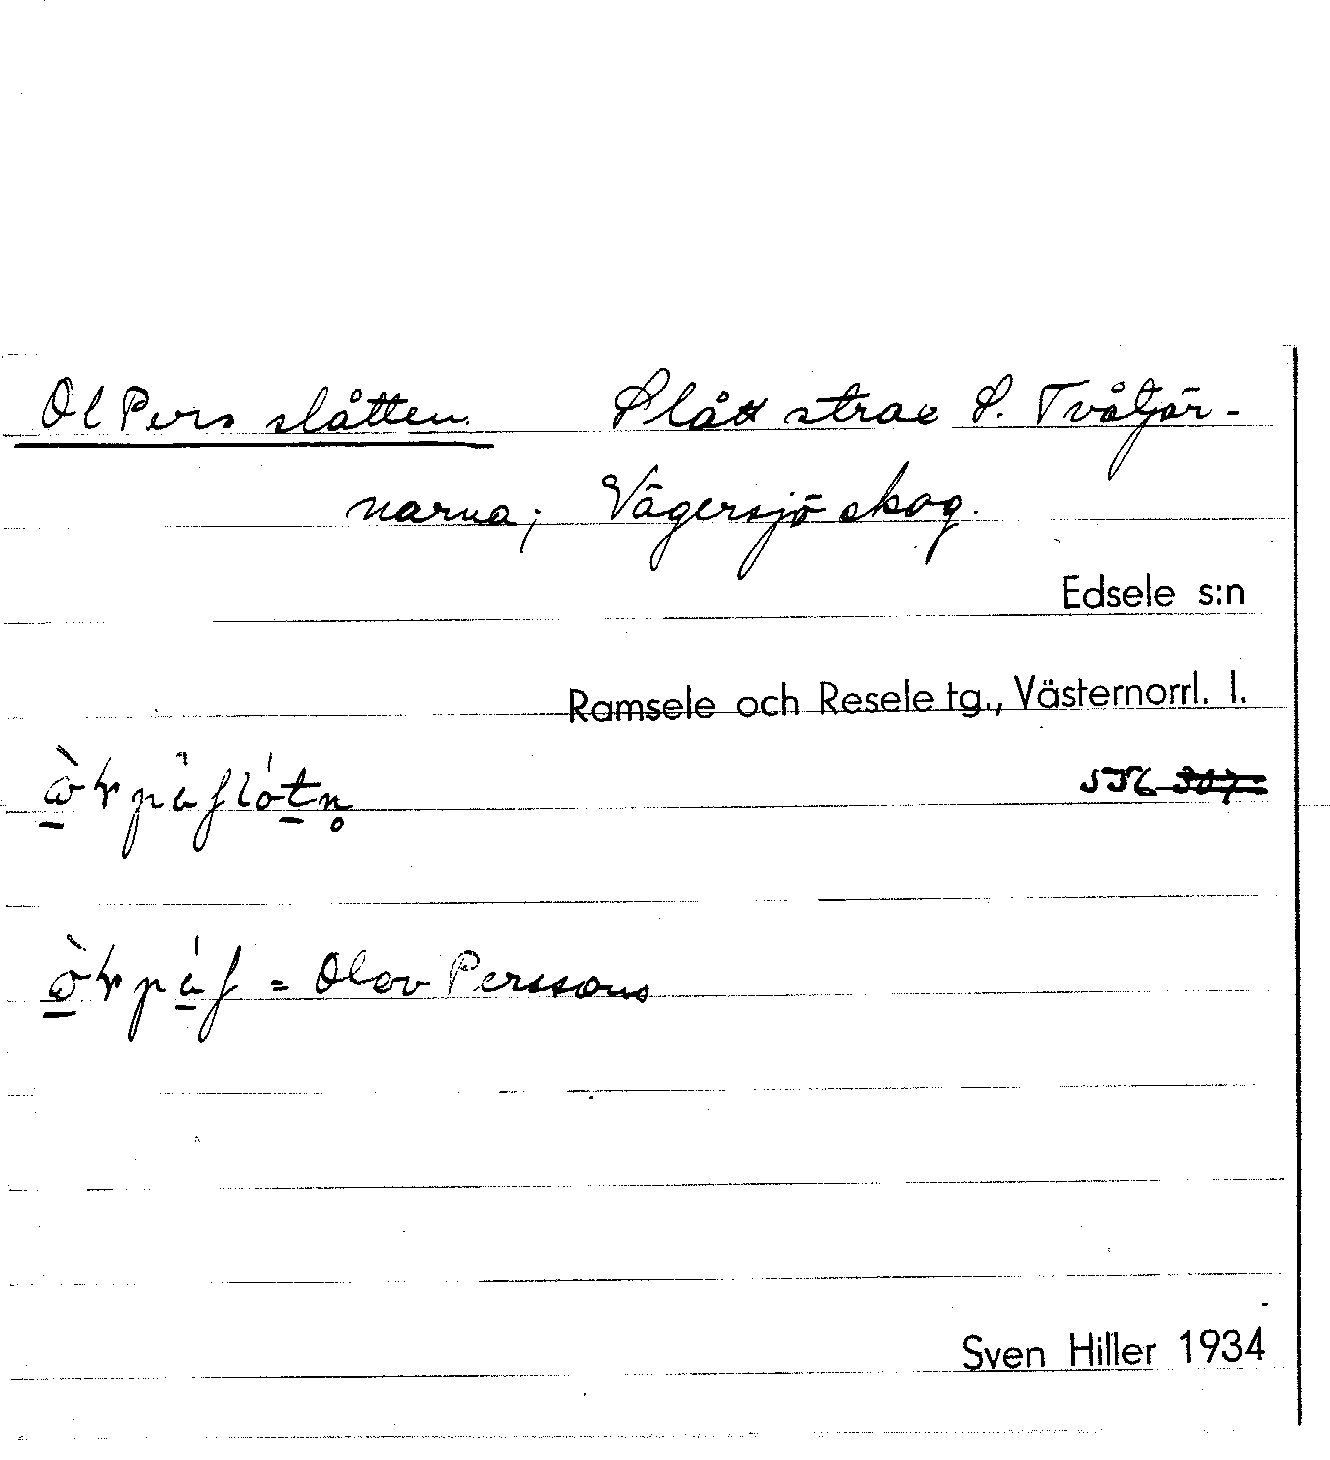 Ol Pers slåtten. Slått strax S. Tvåtjär-
narna; Vägersjö skog.
Edsele s:n
Ramsele och Resele tg., Västernorrl. l.
= Olov Perssons
Sven Hiller 1934